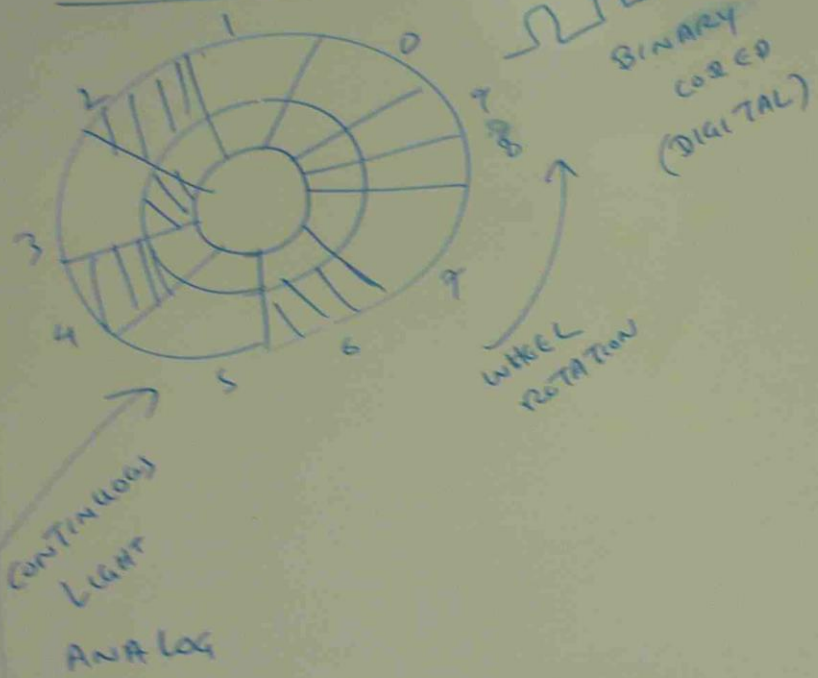 1
0
2
9
8
BINARY
CODED
(DIGITAL)
3
4
5
6
WHEEL
ROTATION
CONTINUOUS
LIGHT
ANALOG